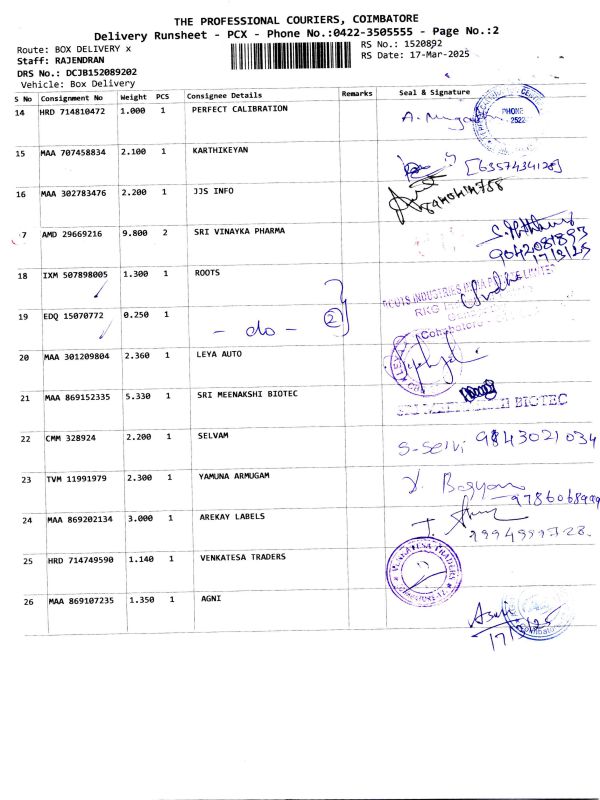 THE PROFESSIONAL COURIERS, COIMBATORE
Delivery Runsheet - PCX - Phone No.:0422-3505555 - Page No.:2
Route: BOX DELIVERY x
RS No.: 1520892
Staff: RAJENDRAN
RS Date: 17-Mar-2025
DRS No.: DCJB152089202
Vehicle: Box Delivery
S No Consignment No Weight PCS Consignee Details Remarks Seal & Signature
14 HRD 714810472 1.000 1 PERFECT CALIBRATION
PHONE
2522
15 MAA 707458834 2.100 1 KARTHIKEYAN
[6357434128]
16 MAA 302783476 2.200 1 JJS INFO
7 AMD 29669216 9.800 2 SRI VINAYKA PHARMA
9042081893
17/3/25
18 IXM 507898005 1.300 1 ROOTS
ROOTS INDUSTRIES INDIA PRIVATE LIMITED
19 EDQ 15070772 0.250 1 - do - 2
20 MAA 301209804 2.360 1 LEYA AUTO
21 MAA 869152335 5.330 1 SRI MEENAKSHI BIOTEC
SRI MEENAKSHI BIOTEC
22 CMM 328924 2.200 1 SELVAM
S-Selvi 9843021034
23 TVM 11991979 2.300 1 YAMUNA ARMUGAM
9786068999
24 MAA 869202134 3.000 1 AREKAY LABELS
9994999728
25 HRD 714749590 1.140 1 VENKATESA TRADERS
VENKATESA TRADERS
26 MAA 869107235 1.350 1 AGNI
17/3/25